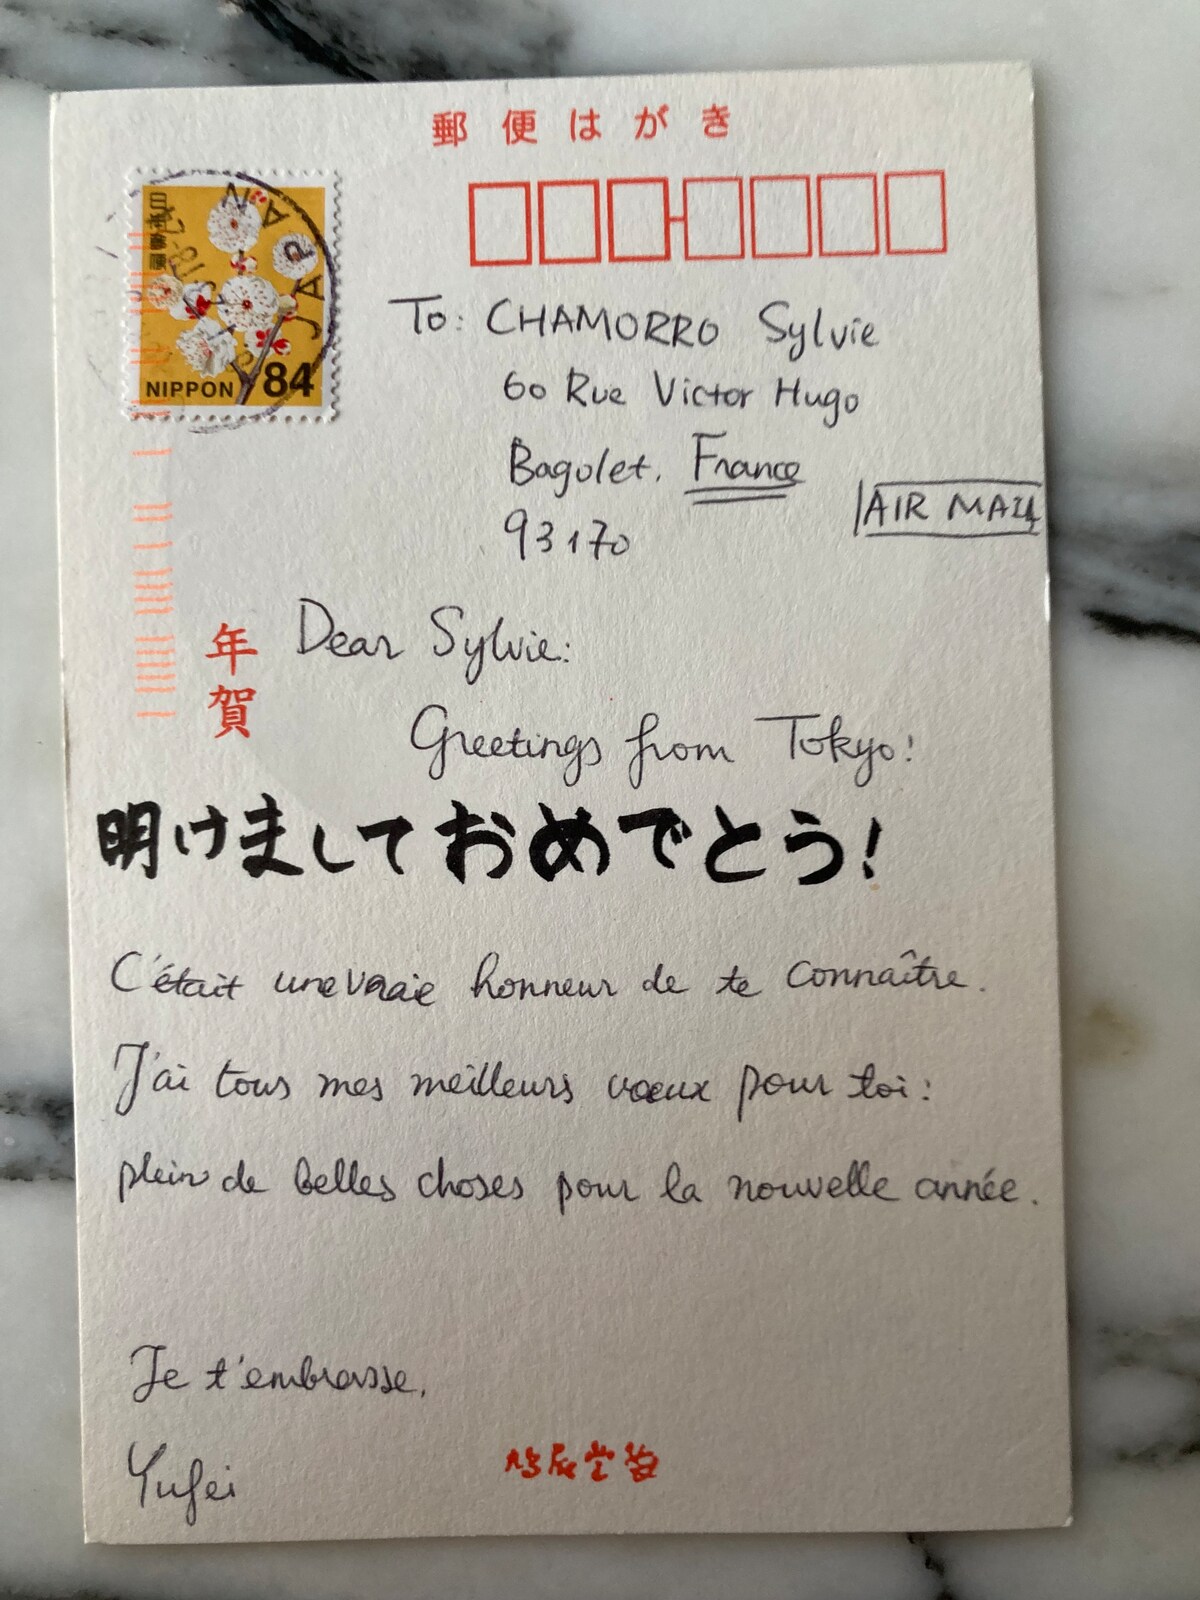 郵便はがき
日本郵便
JAPAN
NIPPON 84
To: CHAMORRO Sylvie
60 Rue Victor Hugo
Bagolet, France
AIR MAIL
93170
年賀
Dear Sylvie:
Greetings from Tokyo!
明けましておめでとう!
C'était une vraie honneur de te connaître.
J'ai tous mes meilleurs vœux pour toi:
plein de belles choses pour la nouvelle année.
Je t'embrasse.
Yufei